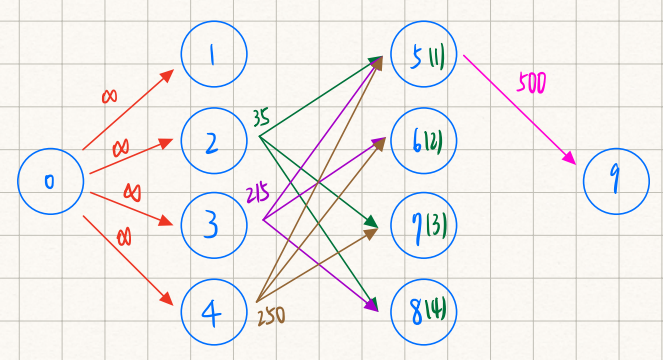 0
∞
∞
∞
∞
1
2
3
4
35
215
250
5(1)
6(2)
7(3)
8(4)
500
9